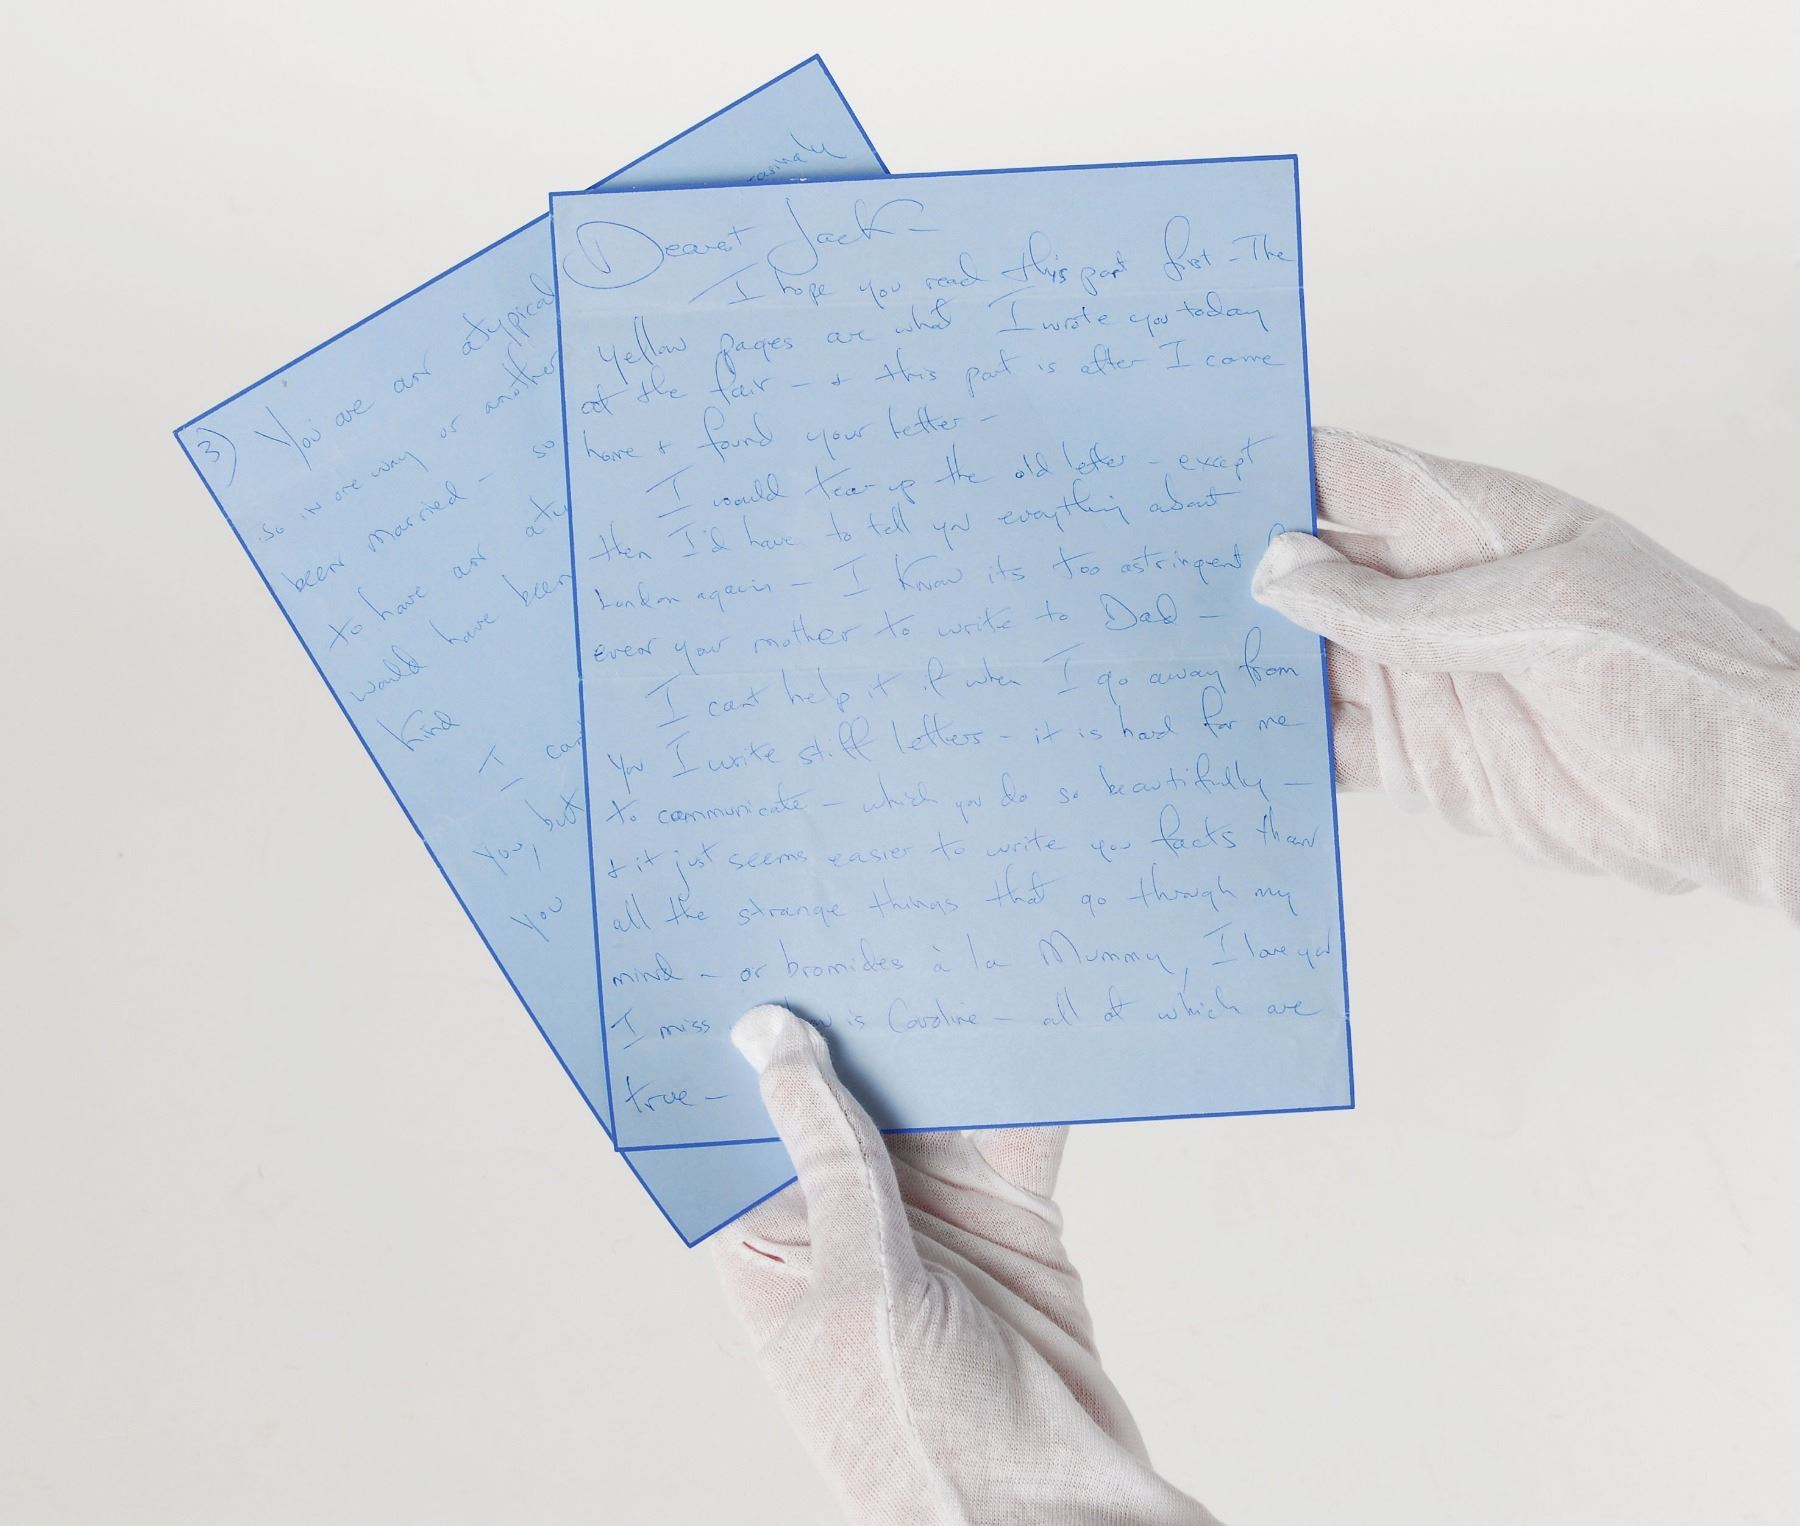 Dearest Jack –
I hope you read this part first – The
yellow pages are what I wrote you today
at the fair – + this part is after I came
home + found your letter –
I would tear up the old letter – except
then I'd have to tell you everything about
London again – I know its too astringent
even your mother to write to Dad –
I cant help it if when I go away from
you I write stiff letters – it is hard for me
to communicate – which you do so beautifully –
+ it just seems easier to write you facts than
all the strange things that go through my
mind – or bromides à la Mummy, I love you
I miss is Caroline – all of which are
true –
3) You are an atypical
so in one way or another
been married – so
to have an
would have been
kind
I
you, but
you